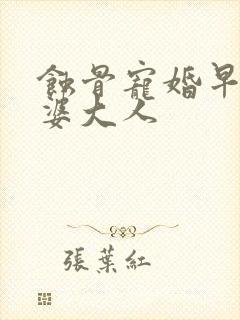 蝕骨寵婚早
婆大人
張葉紅